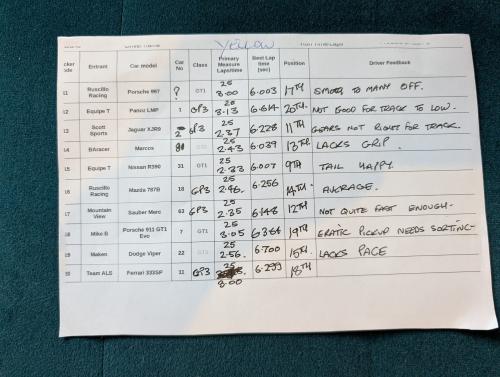 Yellow
cker ode Entrant Car model Car No Class Primary Measure Laps/time Best Lap time (sec) Position Driver Feedback
11 Ruscillo Racing Porsche 967 ? GT1 25 3.00 6.003 17TH SMOOTH TO MANY OFF.
12 Equipe T Panoz LMP 1 GP3 25 3.13 6.614 20TH. NOT GOOD FOR TRACK TO LOW.
13 Scott Sports Jaguar XJR9 2 GP3 25 2.37 6.228 11TH GEARS NOT RIGHT FOR TRACK.
14 BAracer Marcos GT1 25 2.43 6.039 13TH LACKS GRIP.
15 Equipe T Nissan R390 31 GT1 25 2.33 6.007 9TH TAIL HAPPY.
16 Ruscillo Racing Mazda 787B 18 GP3 25 2.46. 6.256 14TH. AVERAGE.
17 Mountain View Sauber Merc 63 GP3 25 2.35 6.148 12TH NOT QUITE FAST ENOUGH-
18 Mike B Porsche 911 GT1 Evo 7 GT1 25 3.05 6.364 19TH ERATIC PICKUP NEEDS SORTING-
19 Maken Dodge Viper 22 GT1 25 2.56. 6.700 15TH. LACKS PACE
20 Team ALS Ferrari 333SP 11 GP3 25 3.00 6.299 18TH